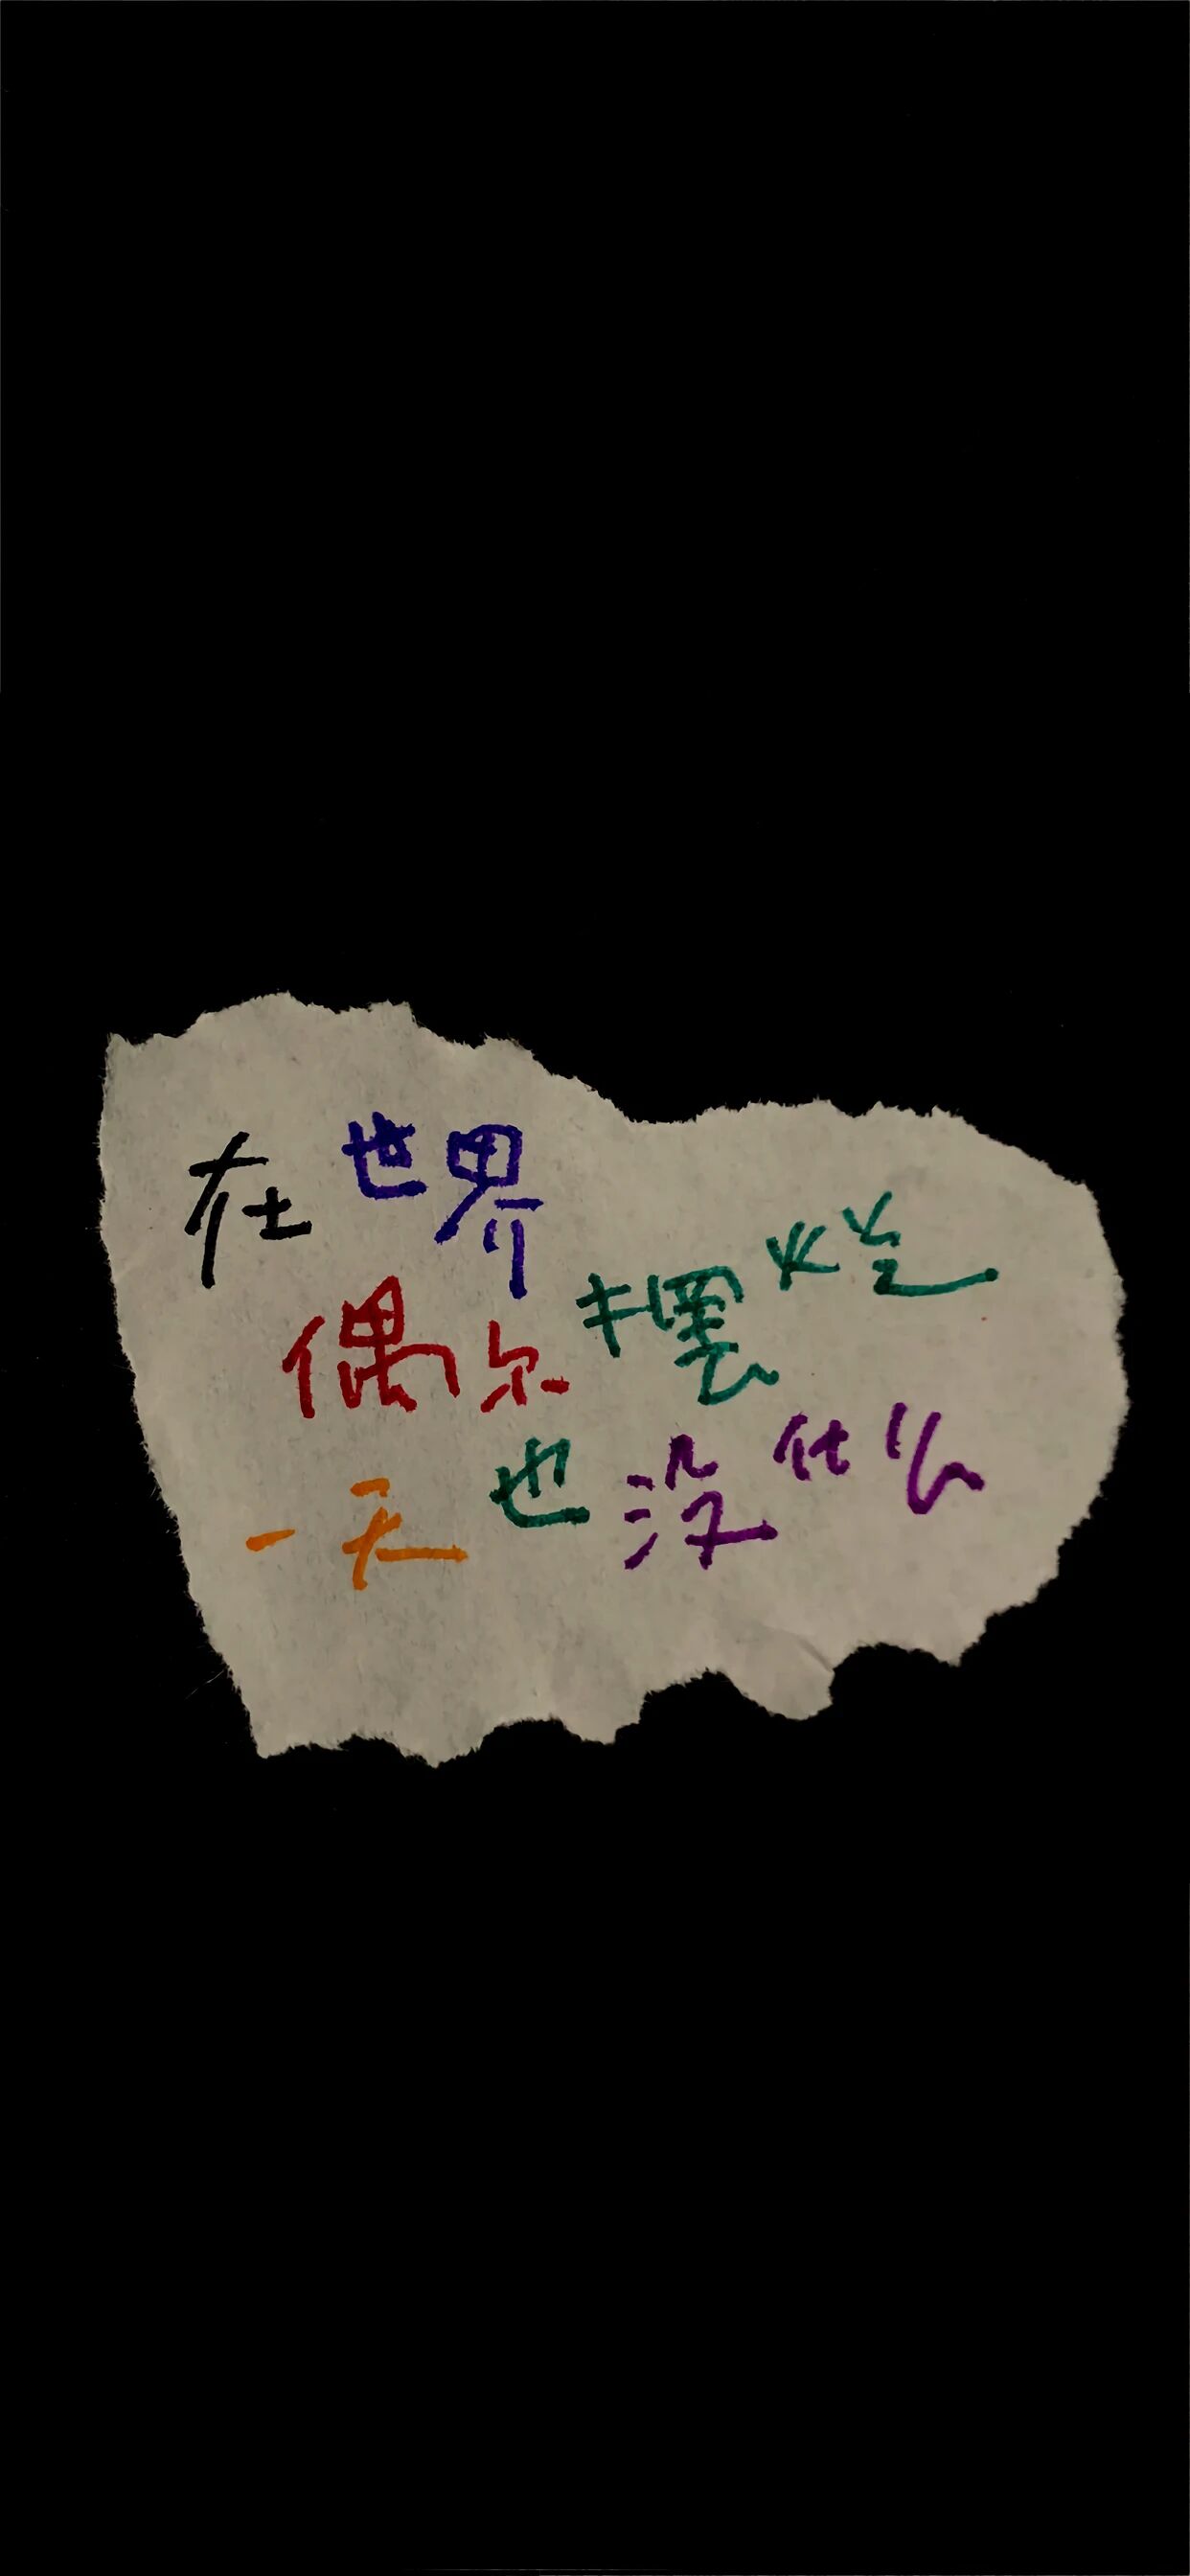 在世界
偶尔摆烂
一天也没什么